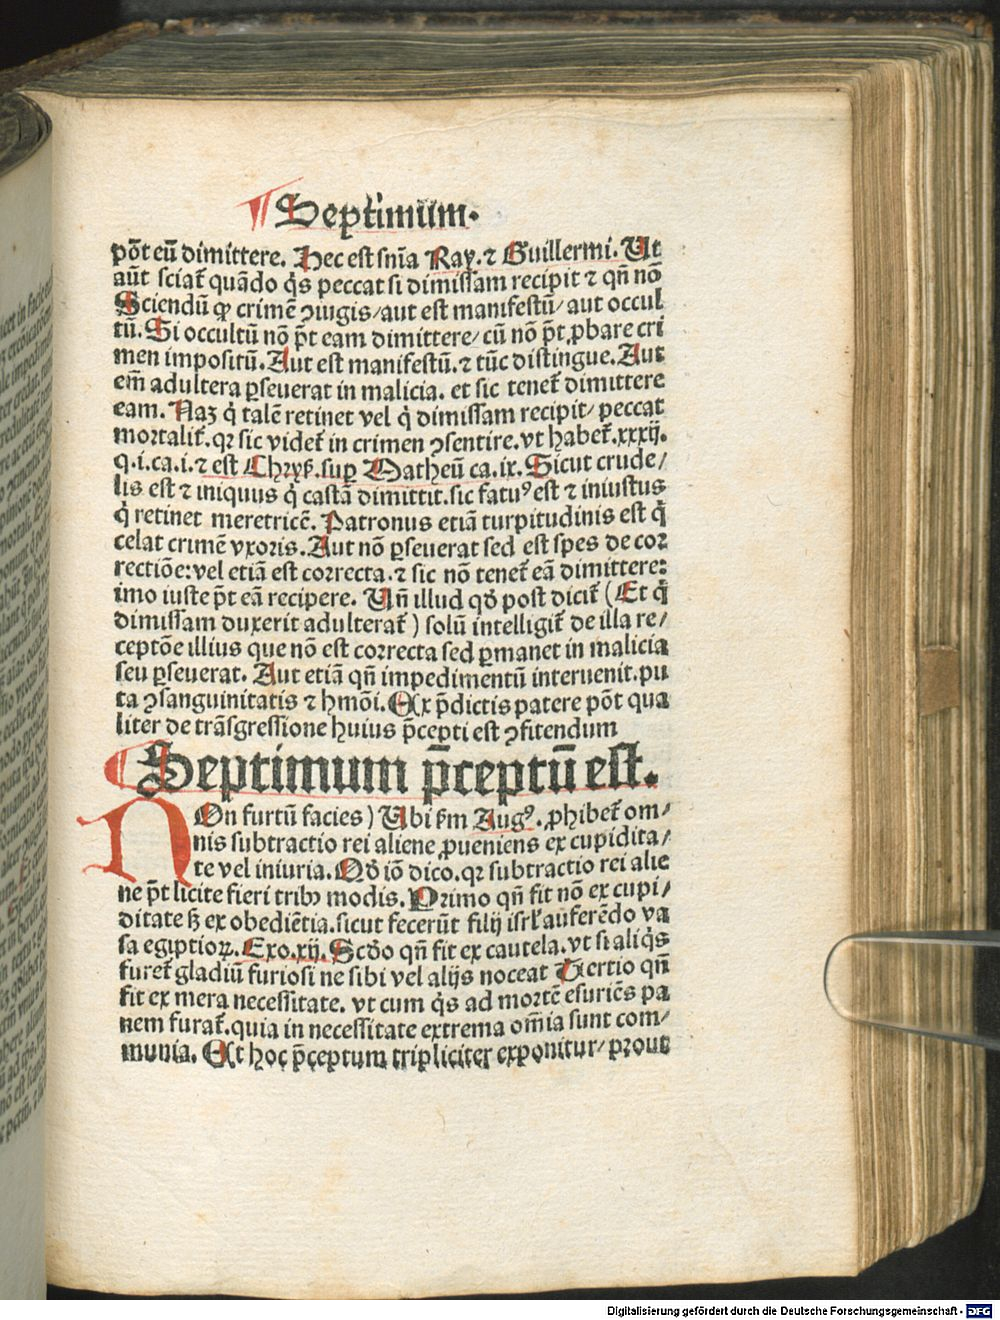 ¶ Septimum.
põt eũ dimittere. Hec est sñia Ray. ⁊ Guillermi. Ut
aũt sciat̃ quãdo q̃s peccat si dimissam recipit ⁊ qñ nõ
Sciendũ ꝙ crimẽ ꝯiugis/aut est manifestũ/aut occul
tũ. Si occultũ nõ p̃t eam dimittere/cũ nõ p̃t ꝓbare cri
men impositũ. Aut est manifestũ. ⁊ tũc distingue. Aut
em̃ adultera ꝑseuerat in malicia. et sic tenet̃ dimittere
eam. Naʒ q̃ talẽ retinet vel q̃ dimissam recipit/peccat
mortalit̃. qꝛ sic videt̃ in crimen ꝯsentire. vt habet̃. xxxij.
q. i. ca. i. ⁊ est Chryß. suꝑ Matheũ ca. ix. Sicut crude/
lis est ⁊ iniquus q̃ castã dimittit. sic fatuꝰ est ⁊ iniustus
q̃ retinet meretricẽ. Patronus etiã turpitudinis est q̃
celat crimẽ vxoris. Aut nõ ꝑseuerat sed est spes de coꝛ
rectiõe: vel etiã est coꝛrecta. ⁊ sic nõ tenet̃ eã dimittere:
imo iuste p̃t eã recipere. Uñ illud qđ post dicit̃ (Et q̃
dimissam duxerit adulterat̃) solũ intelligit̃ de illa re/
ceptõe illius que nõ est coꝛrecta sed ꝑmanet in malicia
seu ꝑseuerat. Aut etiã qñ impedimentũ interuenit. pu
ta ꝯsanguinitatis ⁊ hmõi. Ex p̃dictis patere põt qua
liter de trãsgressione huius p̃cepti est ꝯfitendum
¶ Septimum p̃ceptũ est.
NOn furtũ facies) Ubi ẜm Augꝰ. ꝓhibet̃ om/
nis subtractio rei aliene ꝓueniens ex cupidita/
te vel iniuria. Qđ iõ dico. qꝛ subtractio rei alie
ne p̃t licite fieri tribꝰ modis. Primo qñ fit nõ ex cupi/
ditate ß ex obediẽtia. sicut fecerũt filij isrl̃ auferẽdo va
sa egiptioꝝ. Exo. xij. Scđo qñ fit ex cautela. vt si aliq̃s
furet̃ gladiũ furiosi ne sibi vel alijs noceat Tertio qñ
fit ex mera necessitate. vt cum q̃s ad moꝛtẽ esuriẽs pa
nem furat̃. quia in necessitate extrema om̃ia sunt com/
munia. Et hoc p̃ceptum tripliciter exponitur/pꝛout
Digitalisierung gefördert durch die Deutsche Forschungsgemeinschaft - DFG